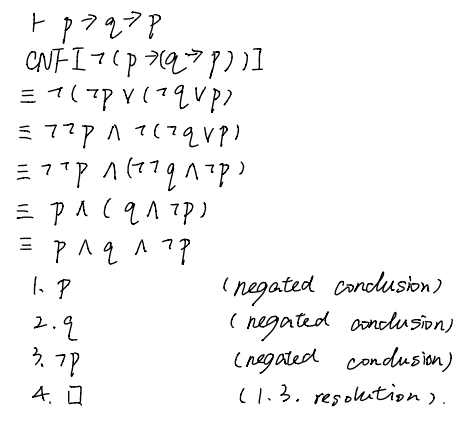 ⊢ p→q→p
CNF[¬(p→(q→p))]
≡ ¬(¬p∨(¬q∨p)
≡ ¬¬p ∧ ¬(¬q∨p)
≡ ¬¬p ∧(¬¬q∧¬p)
≡ p∧(q∧¬p)
≡ p∧q∧¬p
1. p (negated conclusion)
2. q (negated conclusion)
3. ¬p (negated conclusion)
4. □ (1.3. resolution).